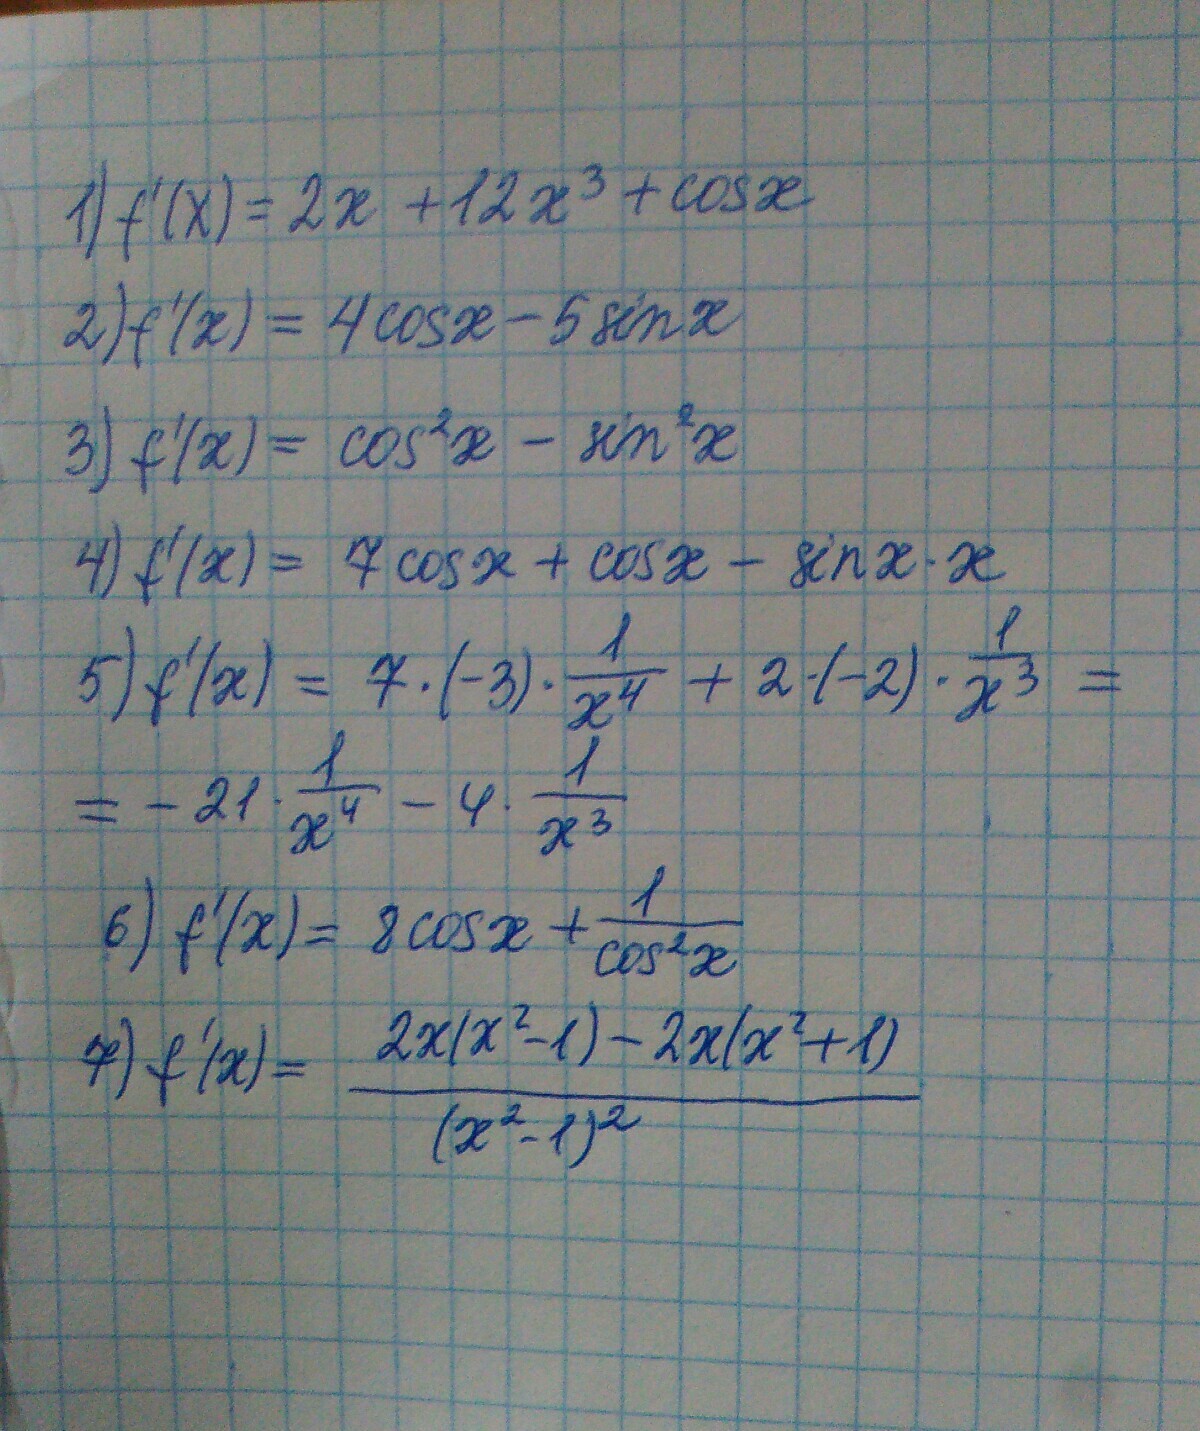 1) f'(x) = 2x + 12x³ + cosx
2) f'(x) = 4cosx - 5sinx
3) f'(x) = cos²x - sin²x
4) f'(x) = 7cosx + cosx - sinx·x
5) f'(x) = 7·(-3)·1/x⁴ + 2·(-2)·1/x³ =
= -21·1/x⁴ - 4·1/x³
6) f'(x) = 8cosx + 1/cos²x
7) f'(x) = (2x(x²-1) - 2x(x²+1))/(x²-1)²